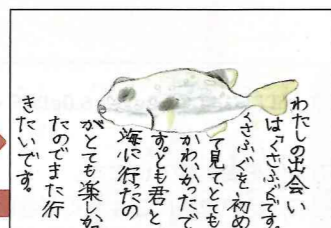 わたしの出会い
は「くさふぐ」です。
くさふぐを初め
て見てとても
かわいかったで
す。とも君と
海に行ったの
がとても楽しか
たのでまた行
きたいです。